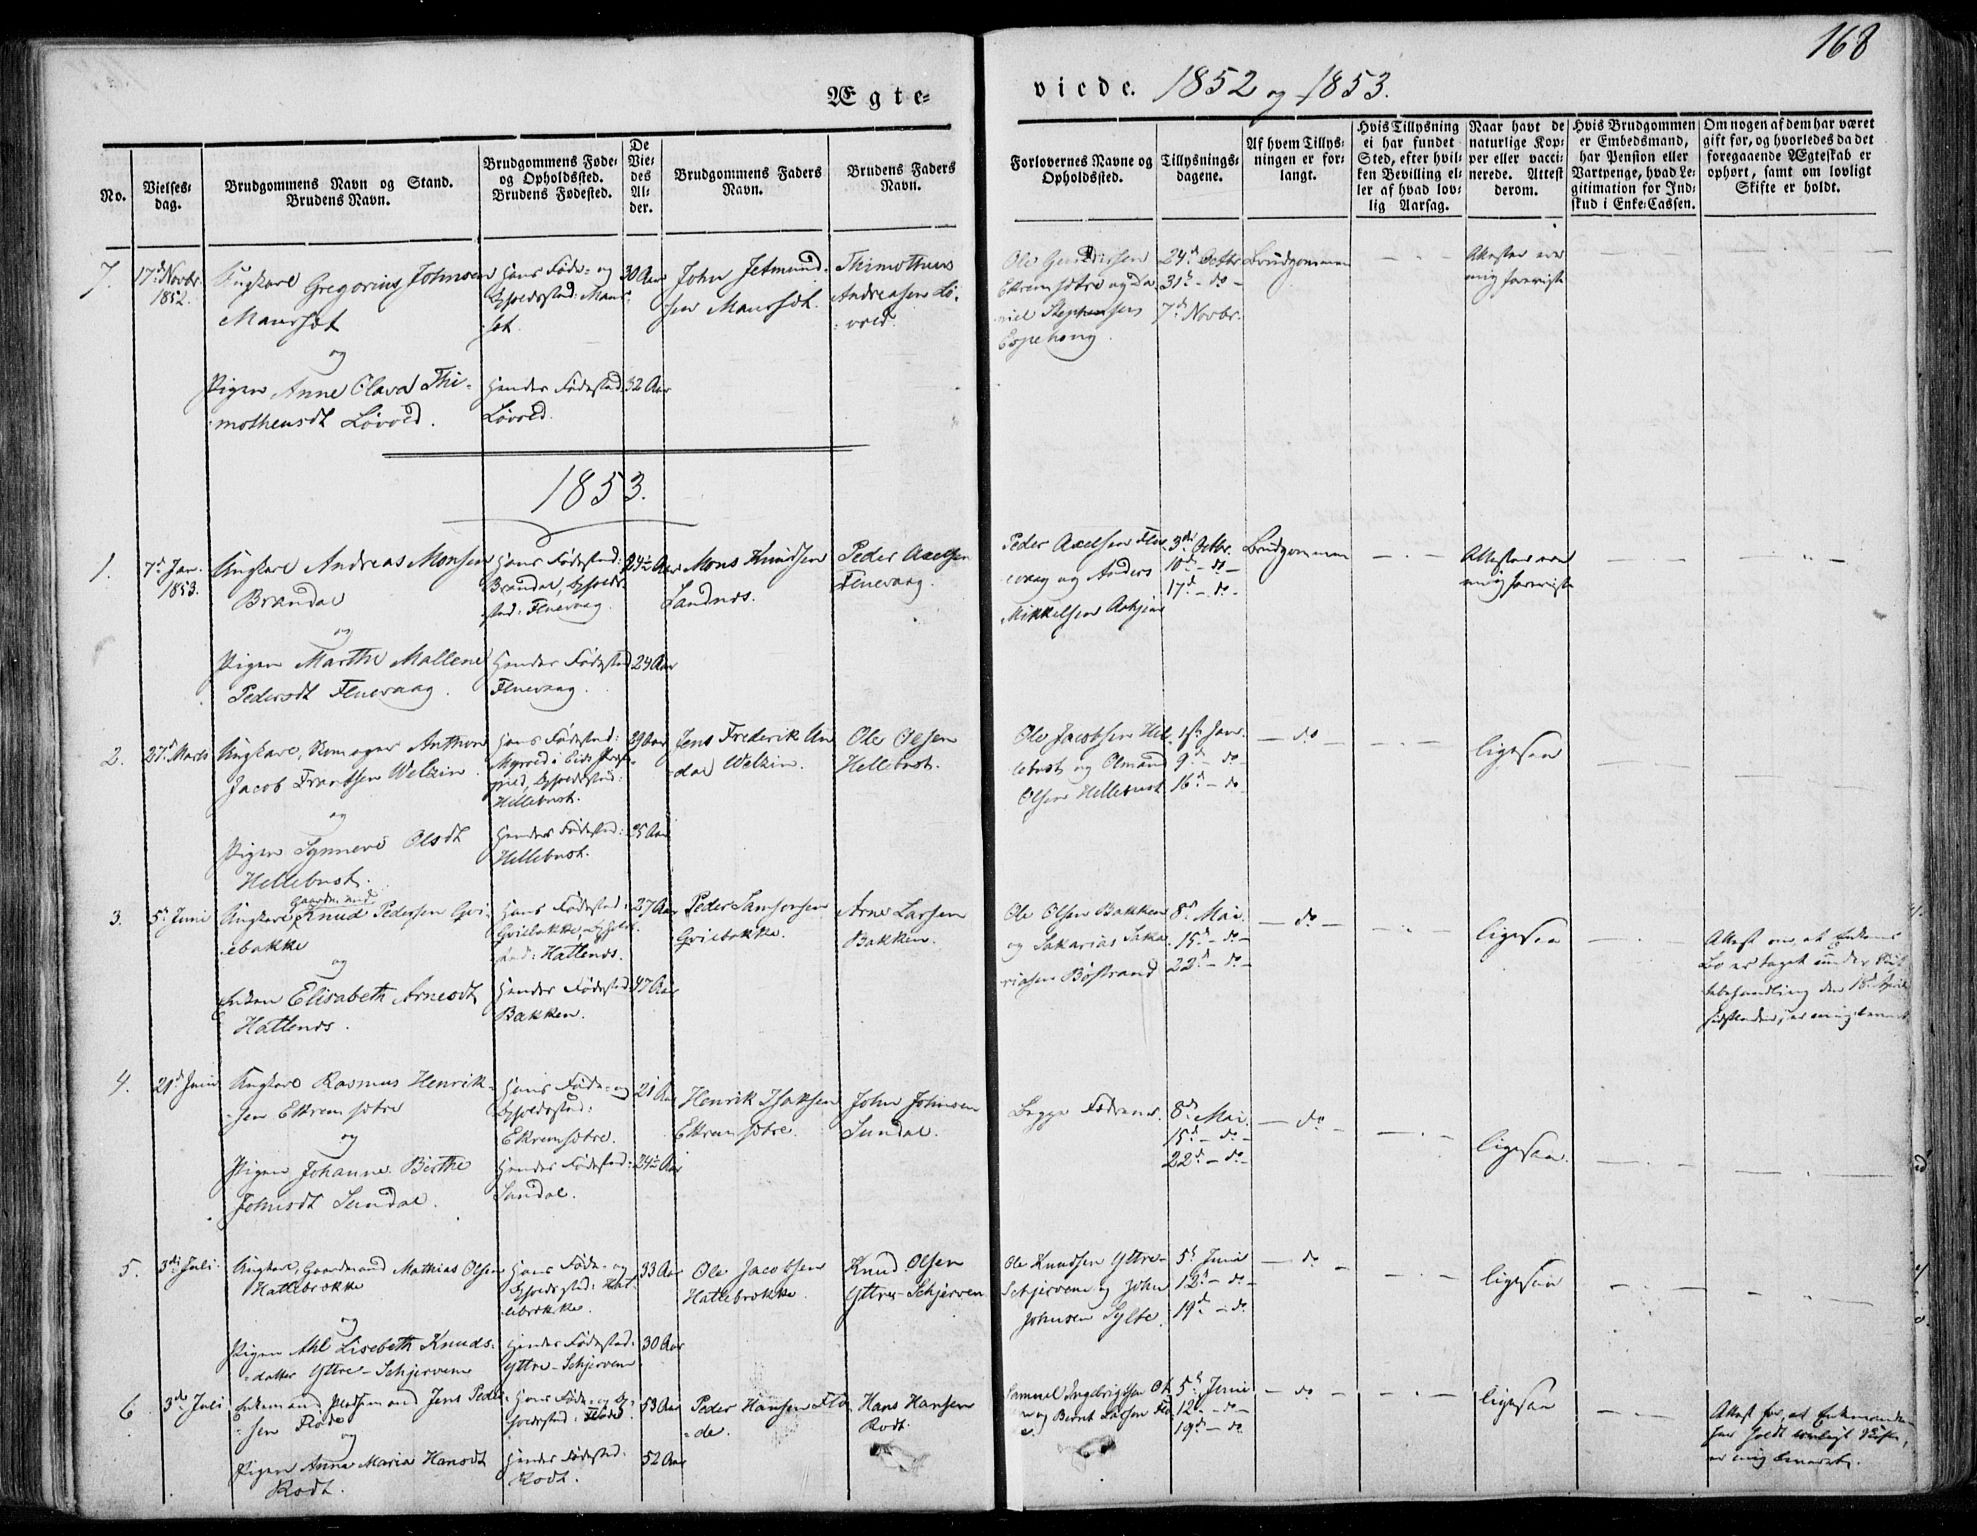 168
Ægte=
viede. 1852 og 1853.
No.
Vielses=
dag.
Brudgommens Navn og Stand.
Brudens Navn.
Brudgommens Føde=
og Opholdssted.
Brudens Fødested.
De
Vie=
des
Al=
der.
Brudgommens Faders
Navn.
Brudens Faders
Navn.
Forlovernes Navne og
Opholdssted.
Tillysnings=
dagene.
Af hvem Tillys=
ningen er for=
langt.
Hvis Tillysning
ei har fundet
Sted, efter hvil=
ken Bevilling el=
ler af hvad lov=
lig Aarsag.
Naar havt de
naturlige Kop=
per eller vacci=
nerede. Attest
derom.
Hvis Brudgommen
er Embedsmand,
har Pension eller
Vartpenge, hvad Le=
gitimation for Ind=
skud i Enke=Cassen.
Om nogen af dem har været
gift før, og hvorledes da det
foregaaende Ægteskab er
ophørt, samt om lovligt
Skifte er holdt.
7.
17d Novbr.
1852.
Ungkarl Gregorius Johnsen
Maursæt
og
Pigen Anne Olava Thi-
motheusdt Løvold.
Hans Føde- og
Opholdssted: Maur-
sæt.
Hendes Fødested:
Løvold.
30 Aar
32 Aar
John Jetmund-
sen Maursæt.
Thimotheus
Andreasen Lø-
vold.
Ole
Ekremsætre og Da-
niel Stephensen
Espehoug.
24d Octbr
31d - do -
7d Novbr.
Brudgommen
Attester ere
mig foreviste
1853.
1.
7d Jan.
1853.
Ungkarl Andreas Monsen
Brandal
og
Pigen Marthe Mallene
Pedersdt Fluevaag.
Hans Fødested:
Brandal, Opholds-
sted: Fluevaag.
Hendes Fødested
Fluevaag.
24½ Aar
24 Aar
Mons Knudsen
Landnes.
Peder Axelsen
Fluevaag.
Peder Axelsen Flue-
vaag og Anders
Mikkelsen
3die Octbr.
10d - do -
17d - do -
Brudgommen
Attester ere
mig foreviste
2.
27d Marts
Ungkarl, Anthon
Jacob Frantsen Welzin.
og
Pigen Synneve Olsdt
Hellebust.
Hans Fødested:
i Eids Præste-
gield, Opholdssted:
Hellebust.
Hendes Fødested:
Hellebust.
29 Aar
25 Aar
Jens Frederik An-
dal Welzin.
Ole Olsen
Hellebust.
Ole Jacobsen Hel-
lebust og Amund
Olsen Hellebust
1ste Jan.
9d - do
16d - do
- do
ligesaa
3.
5d Juni
Ungkarl gaardmand Knud Pedersen Gvi-
ebakke
og
Enken Elisabeth Arnesdt
Hatlenes.
Hans Fødested:
Gviebakke, Opholds-
sted: Hatlenes.
Hendes Fødested
Bakken.
27 Aar
47 Aar
Peder Samsonsen
Gviebakke.
Arne Larsen
Bakken.
Ole Olsen Bakken
og Sakarias Saka-
riasen Bøstrand
8d Mai.
15d - do -
22d - do -
- do -
ligesaa
Attest om, at Enkens
Bo er taget under Skif-
tebehandling den 18d April
sidstleden, er mig leveret
4.
21d Juni
Ungkarl Rasmus Henrik-
sen Ekremsætre
og
Pigen Johanne Birthe
Johnsdt Sundal.
Hans Føde- og
Opholdssted:
Ekremsætre.
Hendes Fødested:
Sundal.
21 Aar
24½ Aar
Henrik Isaksen
Ekremsætre.
John Johnsen
Sundal.
Begge Fædrene.
8d Mai.
15d - do -
22d - do -
- do
ligesaa.
5.
3die Juli.
Ungkarl, Gaardmand Mathias Olsen
Hatlebrække
og
Pigen Ahl Lisebeth Knuds-
datter Yttre-Schjerven
Hans Føde- og
Opholdssted: Hat-
lebrække.
Hendes Fødested:
Yttre-Schjerven
33 Aar
30 Aar
Ole Jacobsen
Hatlebrække.
Knud Olsen
Yttre-Schjerven
Ole Knudsen Yttre-
Schjerven og John
Johnsen Sylte.
5d Juni
12d - do -
19d - do
- do
ligesaa
6
3die Juli
Enkemand, Pladsmand Jens Peder-
sen Flode
og
Pigen Anne Maria Hansdt
Rødt.
Hans Føde- og Op-
holdssted: Flode.
Hendes Fødested:
Rødt.
53 Aar
52 Aar
Peder Hansen Flo-
de.
Hans Hansen
Rødt
Samuel Ingebrigtsen
og Bernt Larsen
5d Juni
12d - do -
19d - do
- do -
ligesaa
Attest for, at Enkemanden
har holdt lovligt Skifte,
er mig leveret.